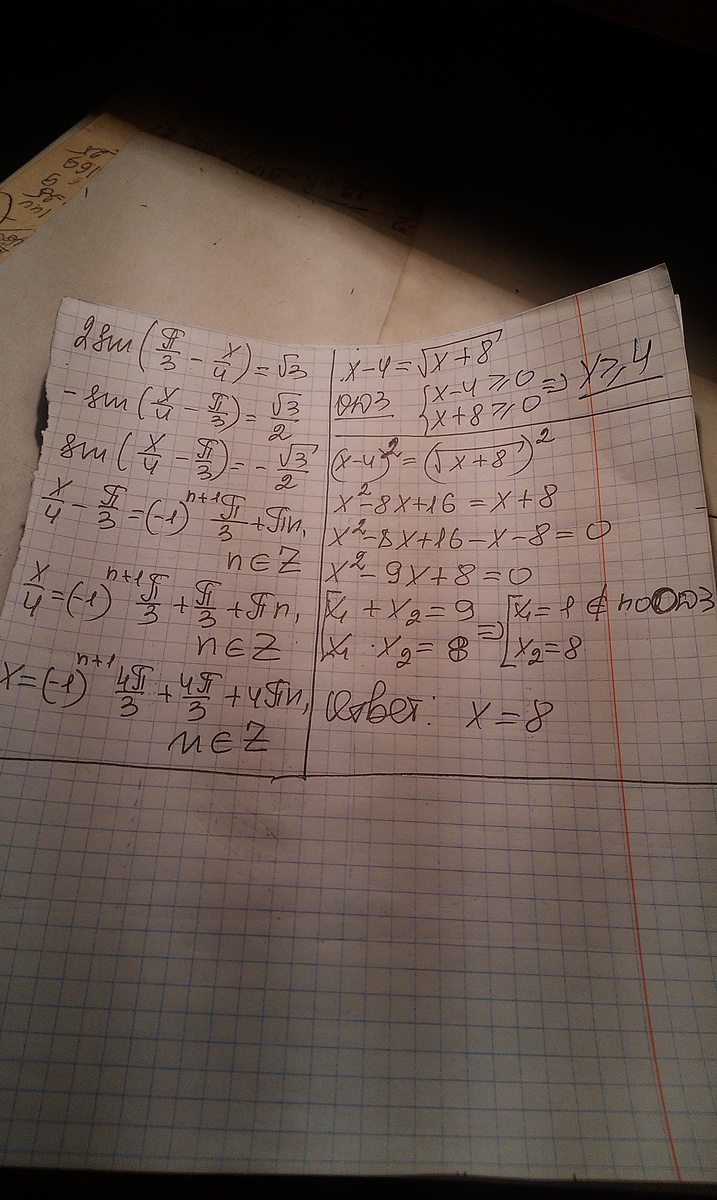 2sin(π/3 - x/4) = √3
-sin(x/4 - π/3) = √3/2
sin(x/4 - π/3) = -√3/2
x/4 - π/3 = (-1)^(n+1) π/3 + πn,
n∈Z
x/4 = (-1)^(n+1) π/3 + π/3 + πn,
n∈Z
x = (-1)^(n+1) 4π/3 + 4π/3 + 4πn,
n∈Z
x-4 = √(x+8)
ОДЗ {x-4 ⩾ 0
x+8 ⩾ 0 => x ⩾ 4
(x-4)² = (√(x+8))²
x²-8x+16 = x+8
x²-8x+16-x-8=0
x²-9x+8=0
[x₁ + x₂ = 9
x₁ · x₂ = 8 => [x₁=1 ∉ по ОДЗ
x₂=8
Ответ: x=8